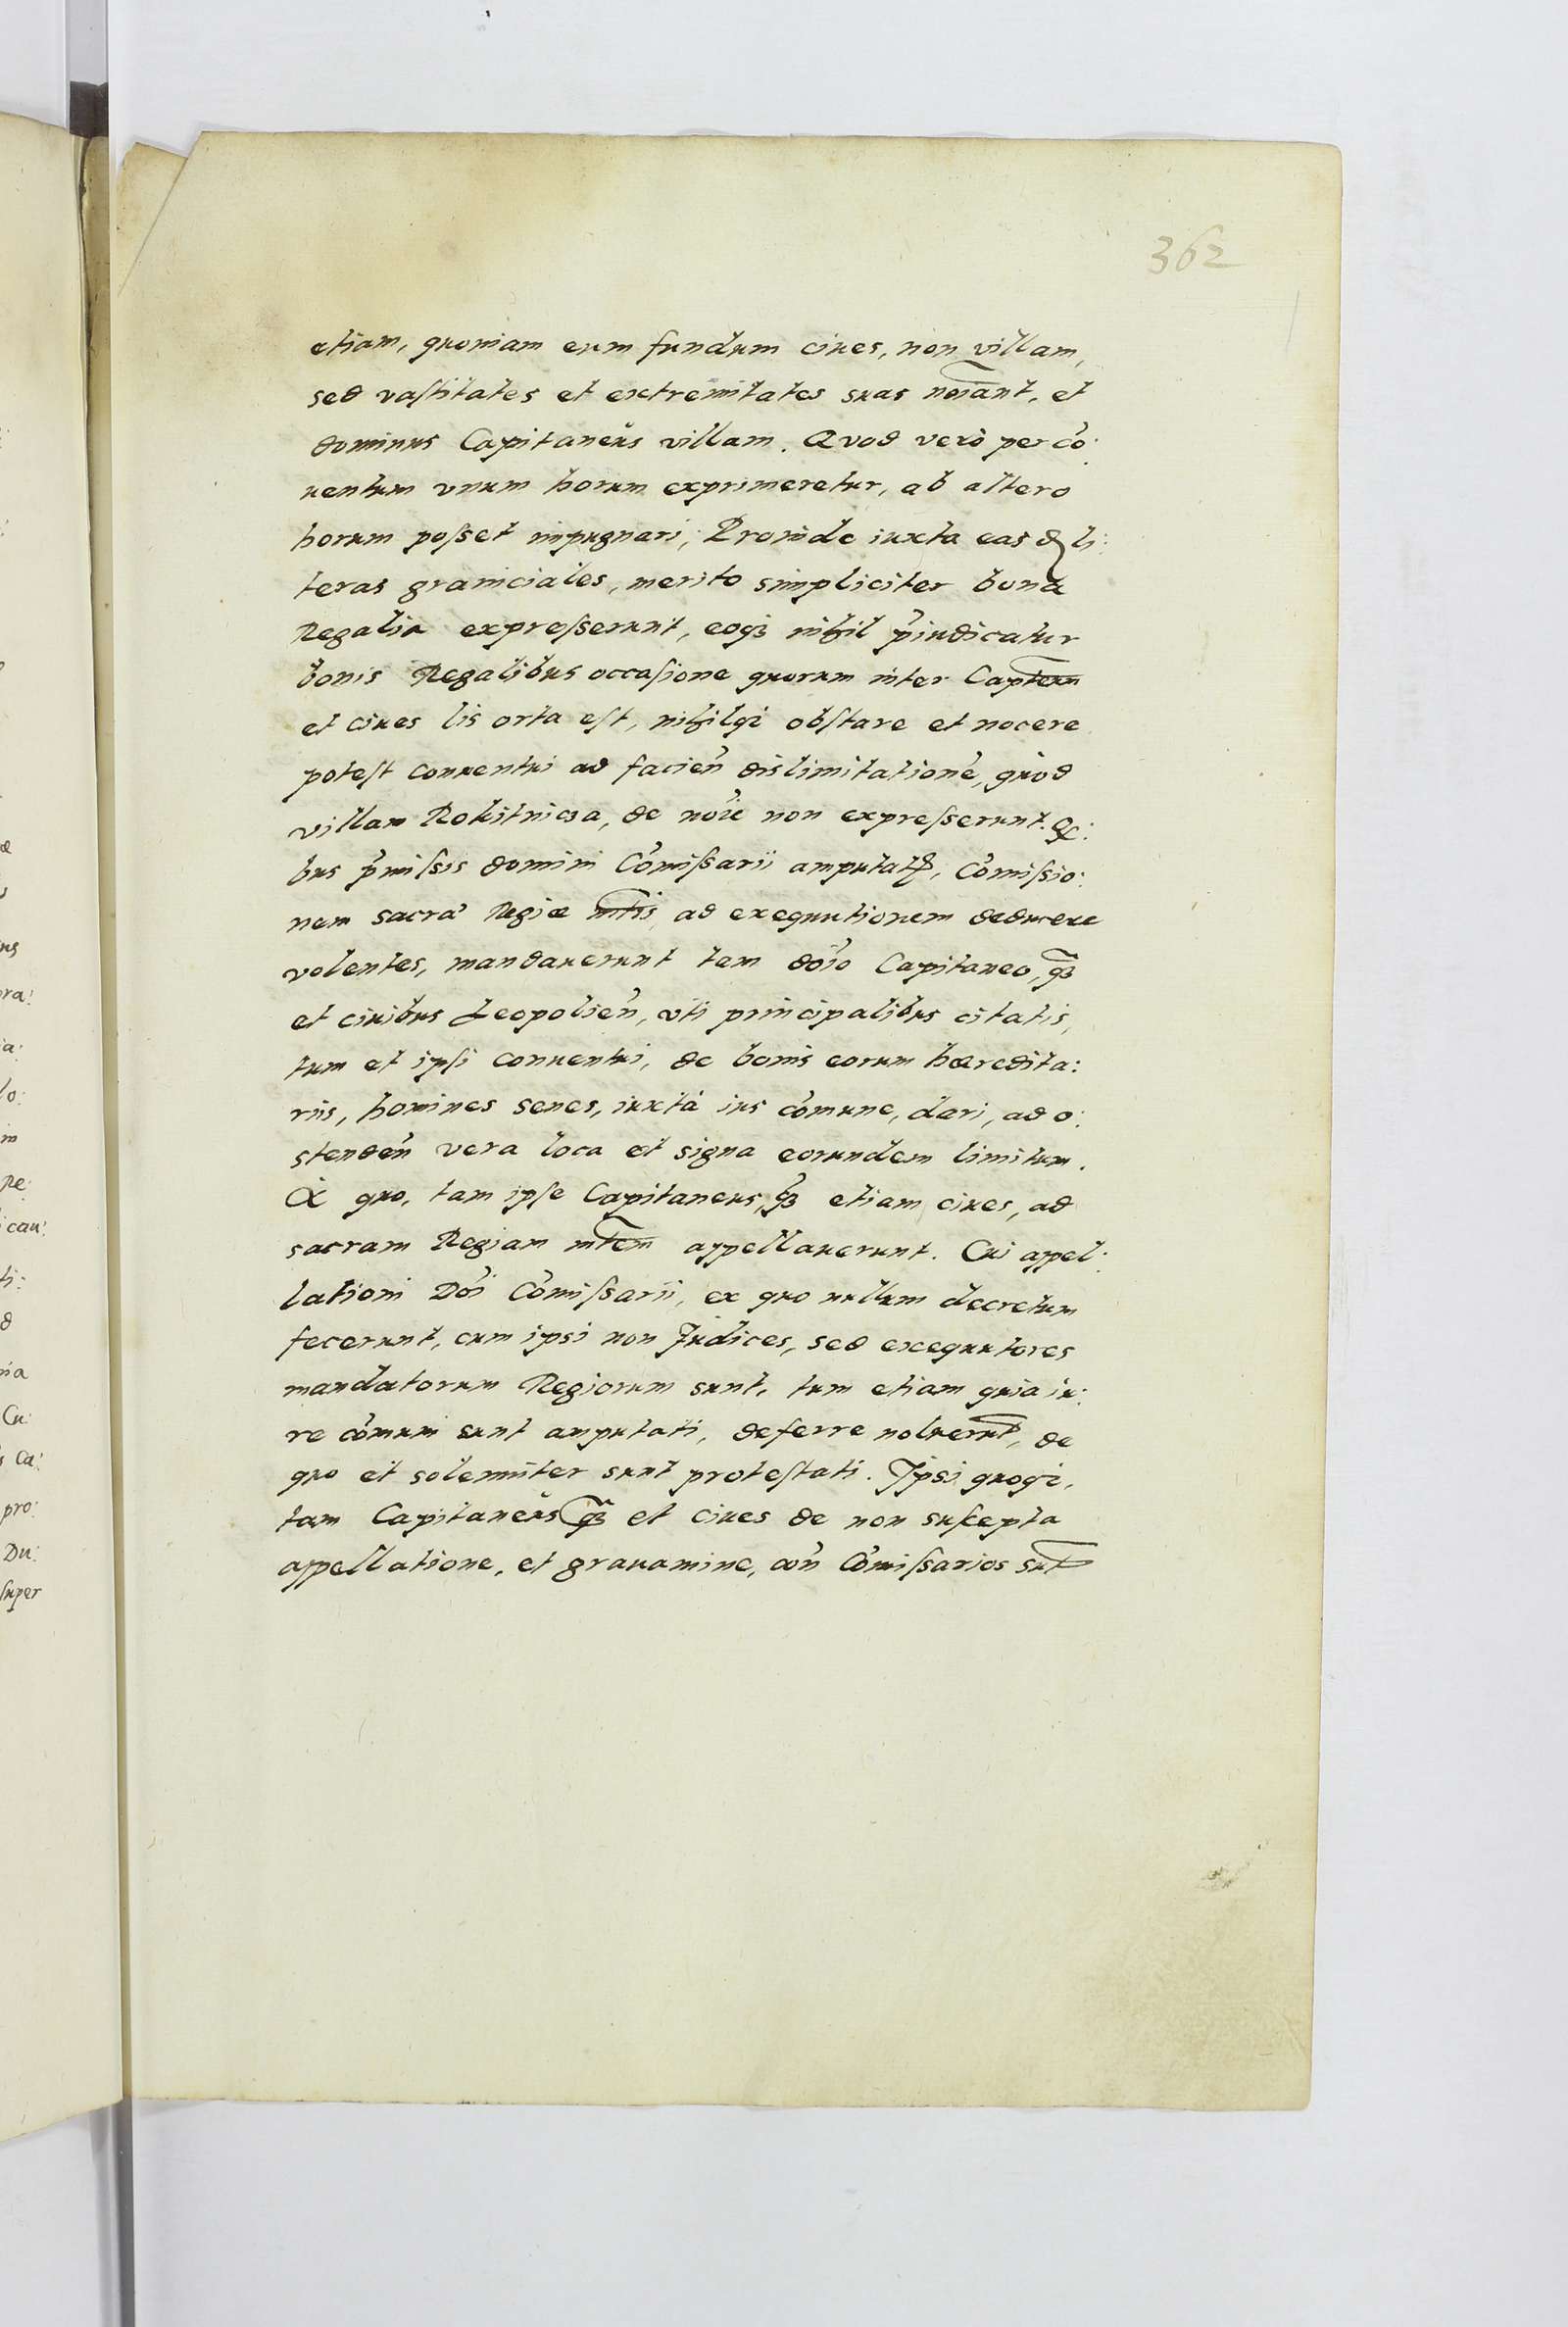 362
etiam, quoniam eum fundum ciues, non villam,
sed vastitates et extremitates suas noiant, et
dominus Capitaneus villam. Quod vero per co:
uentum vnum horum exprimeretur, ab altero
horum posset impugnari, Proinde iuxta eas li:
teras graniciales, merito simpliciter bona
Regalia expresserunt, eoq3 nihil piudicatur
bonis Regalibus occasione quorum inter Captem
et ciues lis orta est, nihilq3 obstare et nocere
potest conuentui ad facien dislimitatione, quod
villam Rokitnicza, de noie non expresserunt. Qi:
bus pmissis domini Comissarii amputatis, Comissio:
nem sacra Regiæ mtis, ad exequutionem deducere
volentes, mandauerunt tam doio Capitaneo, q3
et ciuibus Leopolien, vti principalibus citatis,
tum et ipsi conuentui, de bonis eorum hæredita:
riis, homines senes, iuxta ius comune, dari, ad o:
stenden vera loca et signa eorundem limitum.
A quo, tam ipse Capitaneus, q3 etiam ciues, ad
sacram Regiam mtem appellauerunt. Cui appel:
lationi Doi Comissarii, ex quo nullum decretum
fecerunt, cum ipsi non Judices, sed exequutores
mandatorum Regiorum sunt, tum etiam quia iu:
re comuni sunt amputati, deferre noluerut, de
quo et solemniter sunt protestati. Ipsi quoq3,
tam Capitaneus q3 et ciues de non suscepta
appellatione, et grauamine, con Comissarios sut